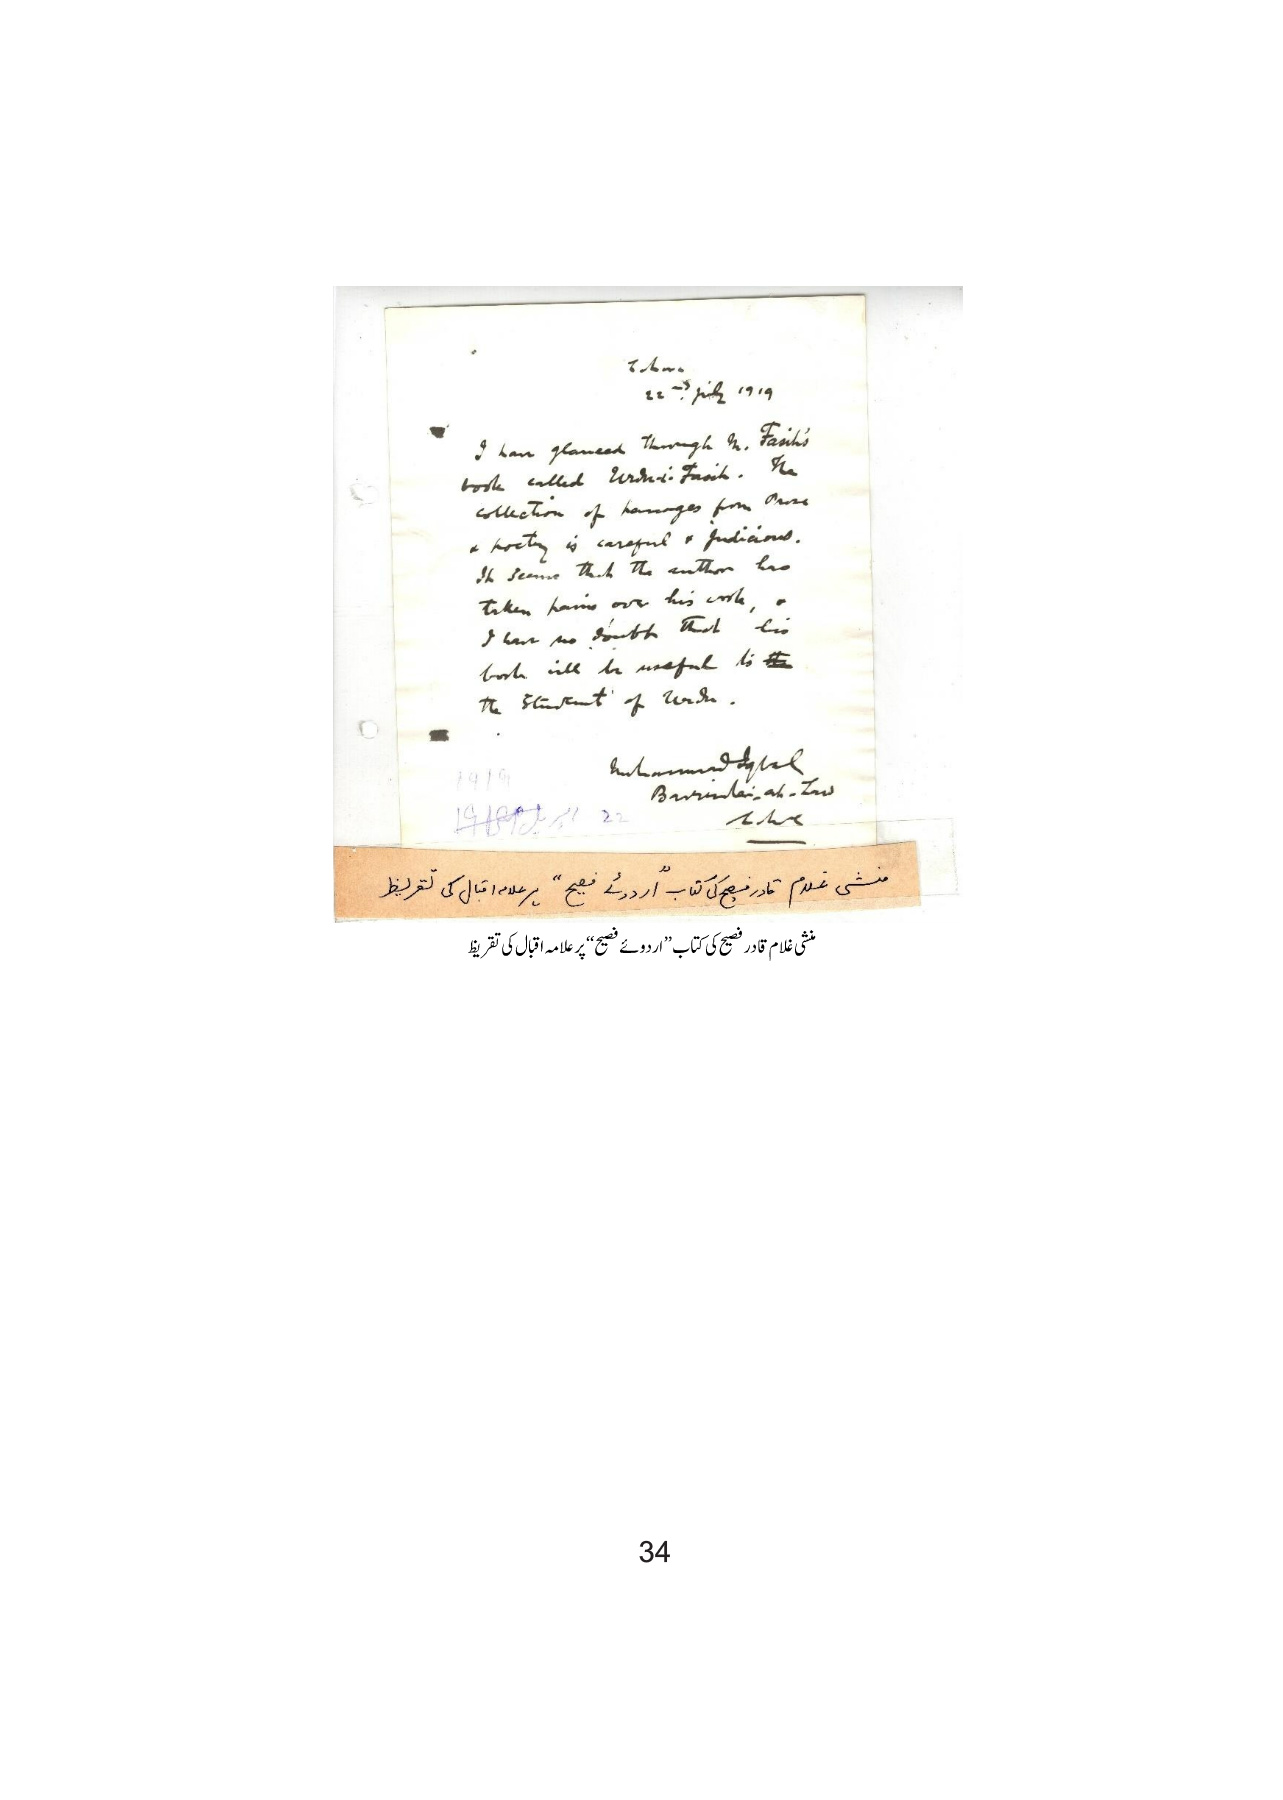 Lahore
22nd July 1919
I have glanced through M. Fasih's
book called Urdu-i-Fasih. The
collection of passages from Prose
& poetry is careful & judicious.
It seems that the author has
taken pains over his work, &
I have no doubt that his
book will be useful to the
the Student of Urdu.
Muhammad Iqbal
Barrister-at-Law
Lahore
1919
22
منشی غلام قادر فصیح کی کتاب "اردوئے فصیح" پر علامہ اقبال کی تقریظ
منشی غلام قادر فصیح کی کتاب ”اردوئے فصیح“ پر علامہ اقبال کی تقریظ
34